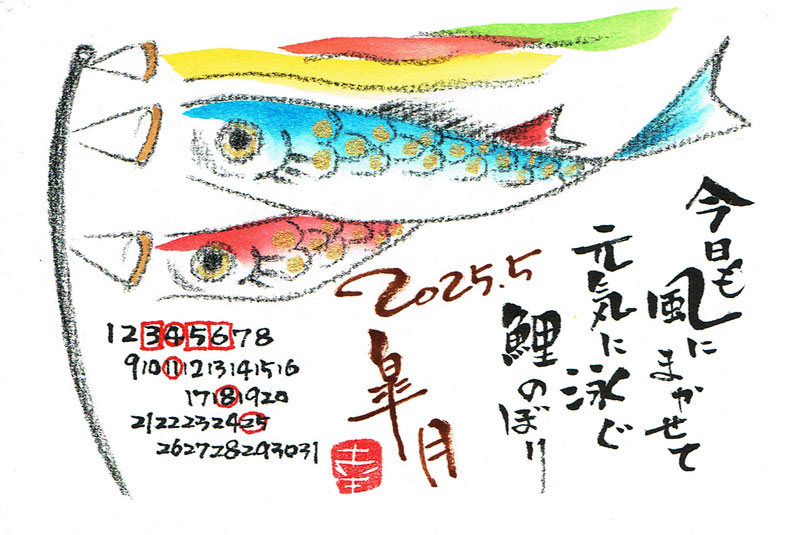 今日も風にまかせて
元気に泳ぐ
鯉のぼり
2025.5
皐月
1 2 3 4 5 6 7 8
9 10 11 12 13 14 15 16
17 18 19 20
21 22 23 24 25
26 27 28 29 30 31